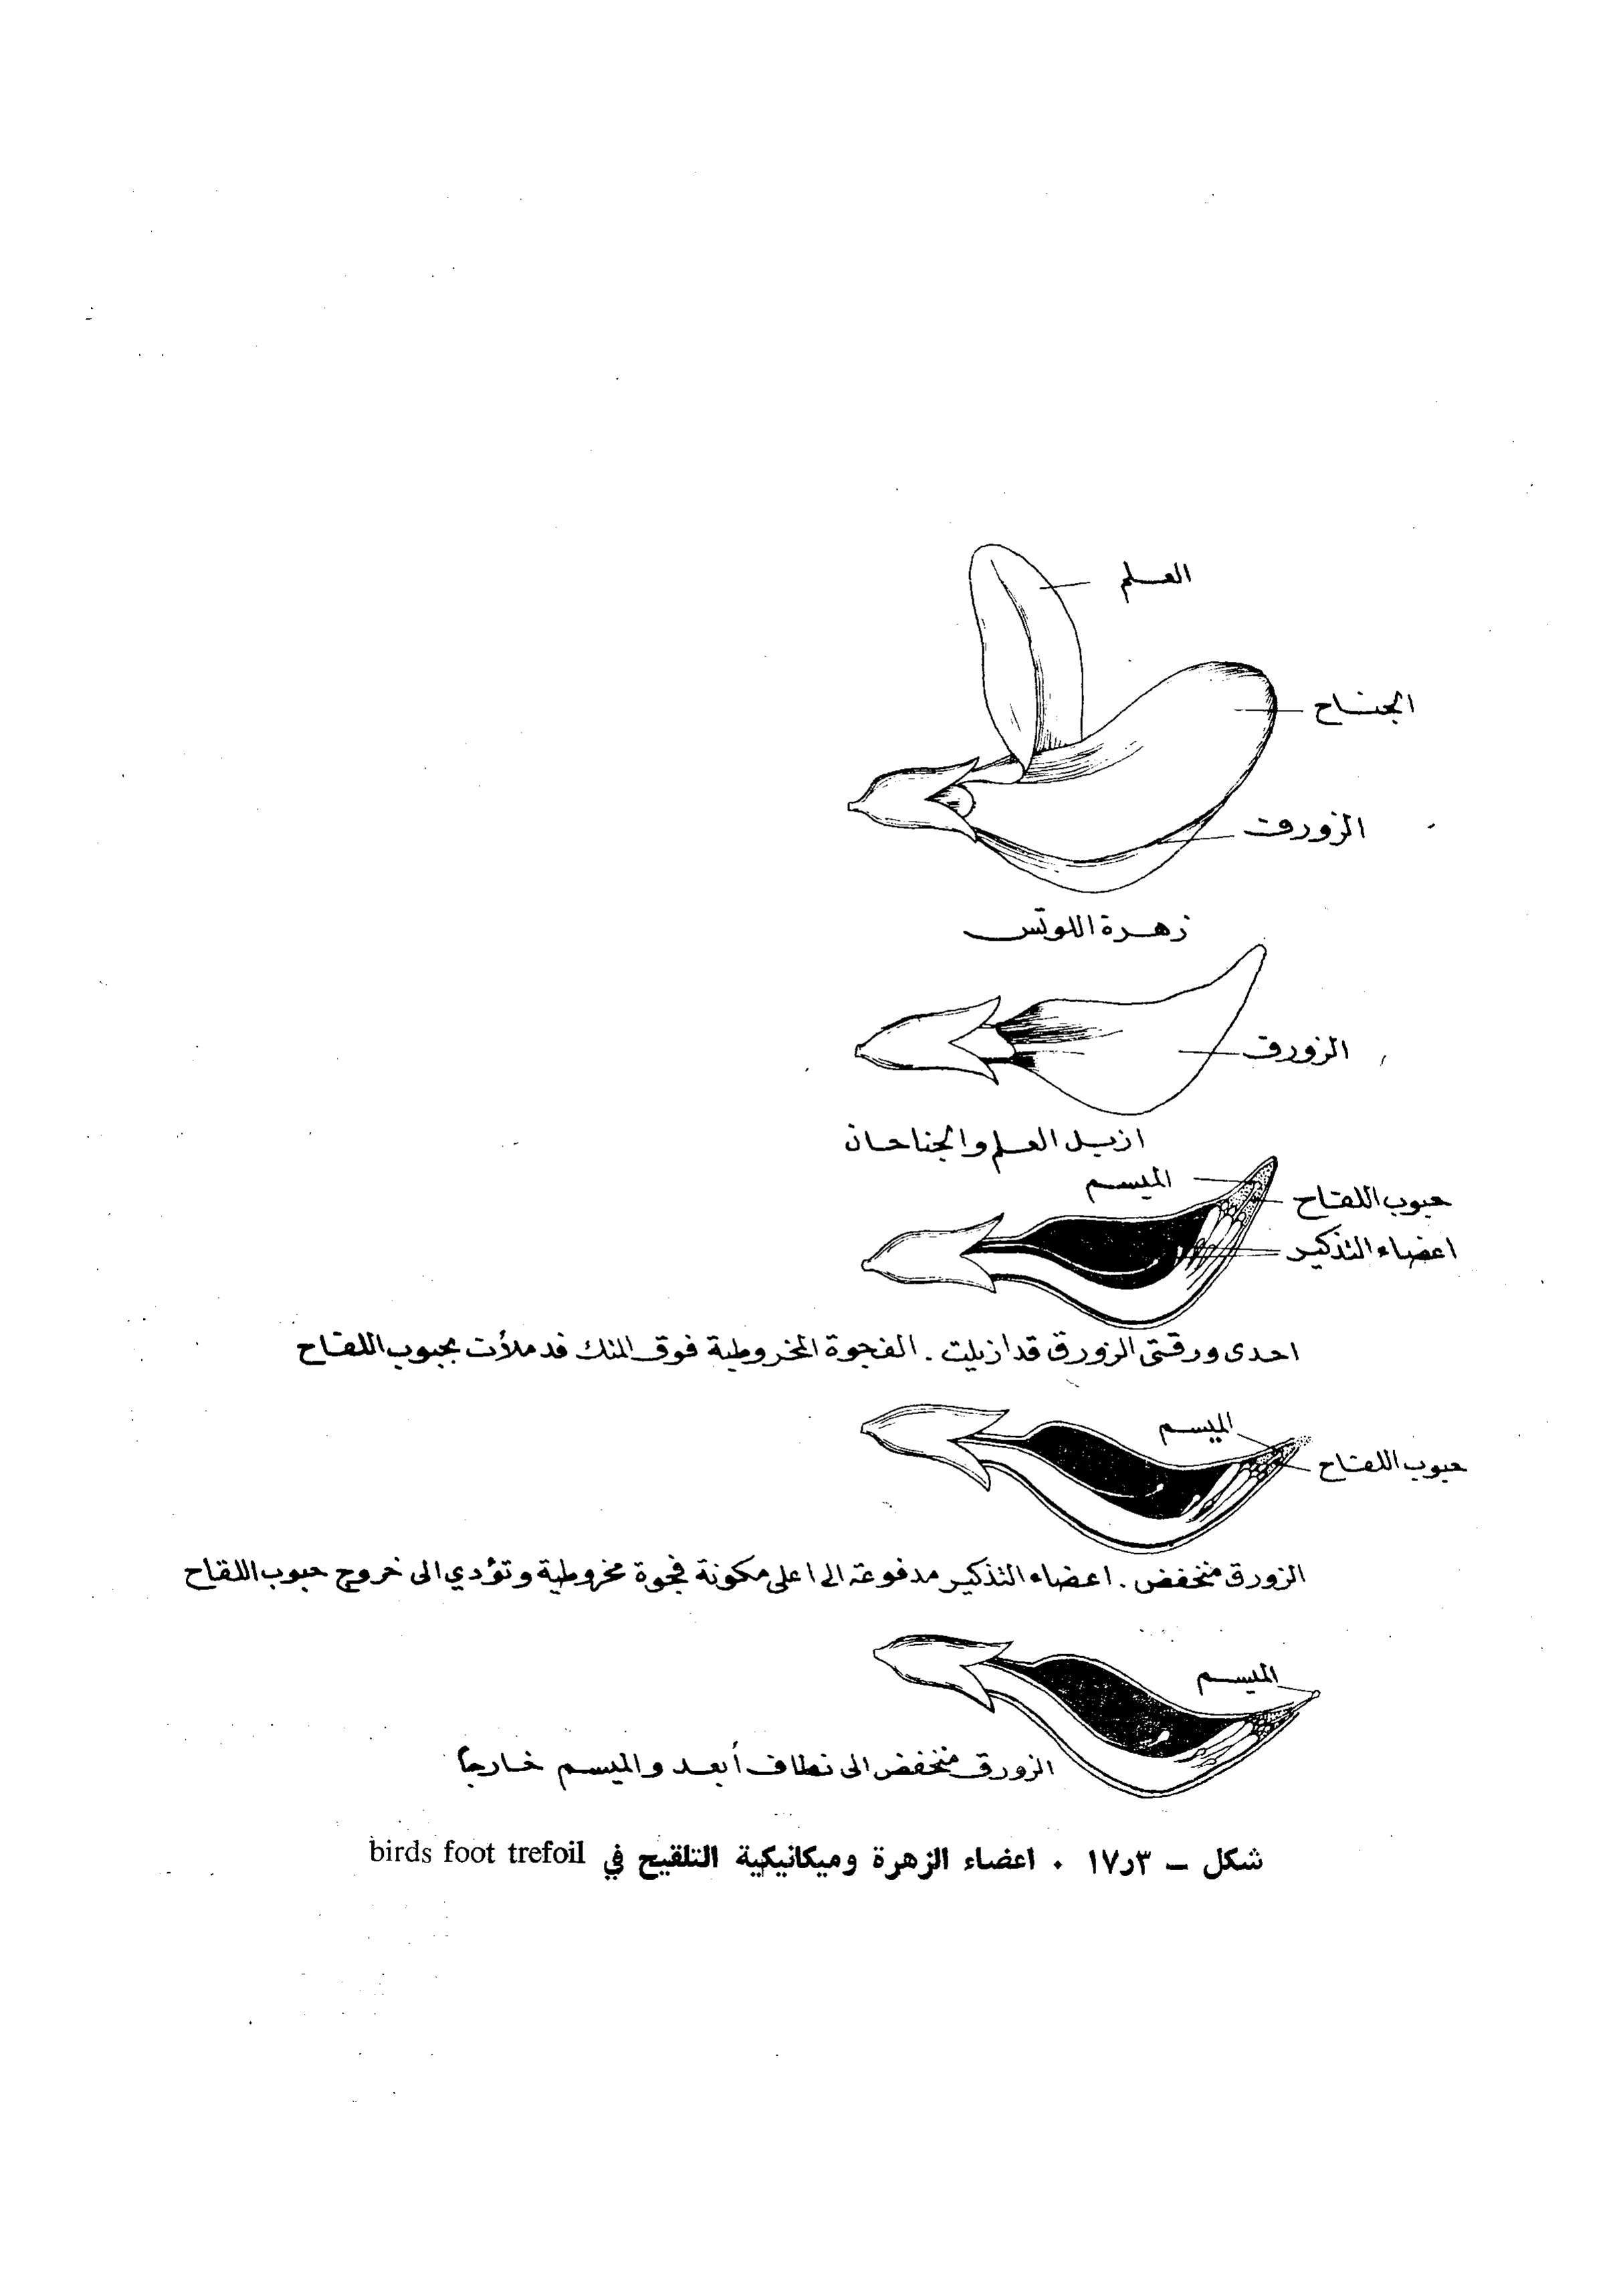 العلم
الجناح
الزورق
زهرة اللوتس
الزورق
ازيل العلم والجناحان
الميسم
حبوب اللقاح
اعضاء التذكير
احدى ورقتي الزورق قد ازيلت . الفجوة المخروطية فوق المتك قد ملأت بحبوب اللقاح
الميسم
حبوب اللقاح
الزورق منخفض . اعضاء التذكير مدفوعة الى اعلى مكونة فجوة مخروطية وتؤدي الى خروج حبوب اللقاح
الميسم
الزورق منخفض الى نطاف أبعد والميسم خارجاً
شكل – ١٧ر٣ . اعضاء الزهرة وميكانيكية التلقيح في birds foot trefoil